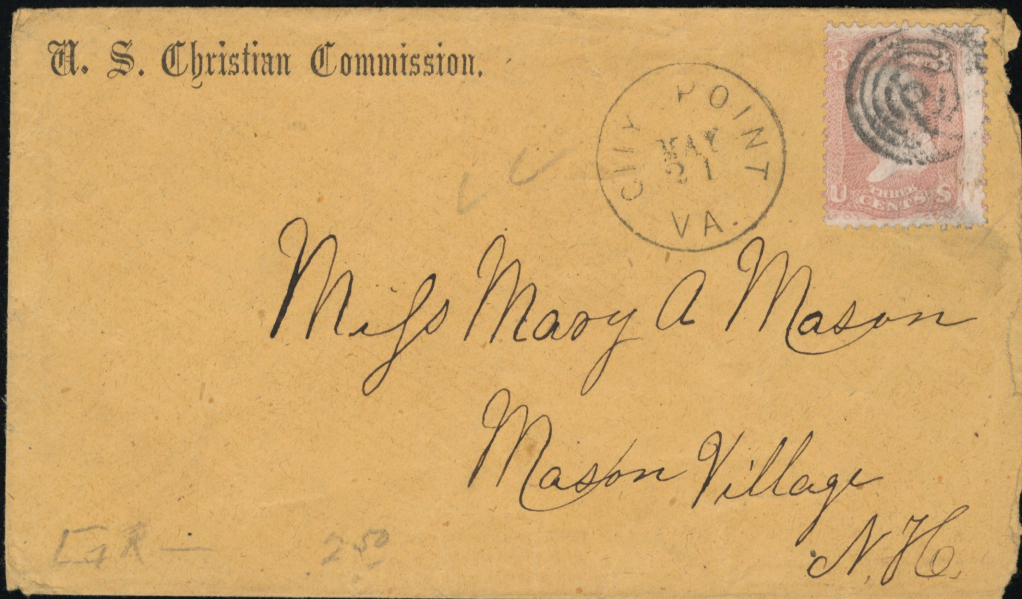 U. S. Christian Commission.
CITY POINT
MAY
21
VA.
3
U THREE S
CENTS
Miſs Mary A Mason
Mason Village
N. H.
2 50